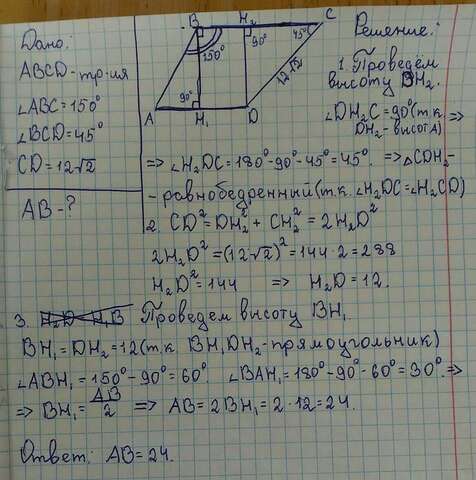 Дано:
ABCD - тр-ия
∠ABC = 150°
∠BCD = 45°
CD = 12√2
AB - ?
B H₂ C
150° 90° 45°
90° 12√2
A H₁ D
Решение:
1. Проведём
высоту BH₂.
∠DH₂C = 90° (т.к. =>
DH₂ - высота)
=> ∠H₂DC = 180° - 90° - 45° = 45°. => △CDH₂ -
- равнобедренный (т.к. ∠H₂DC = ∠H₂CD)
2. CD² = DH₂² + CH₂² = 2H₂D²
2H₂D² = (12√2)² = 144 · 2 = 288
H₂D² = 144 => H₂D = 12.
3. H₂D = H₁B Проведем высоту BH₁.
BH₁ = DH₂ = 12 (т.к. BH₁DH₂ - прямоугольник)
∠ABH₁ = 150° - 90° = 60° ∠BAH₁ = 180° - 90° - 60° = 30°. =>
=> BH₁ = AB/2 => AB = 2BH₁ = 2 · 12 = 24.
Ответ: AB = 24.